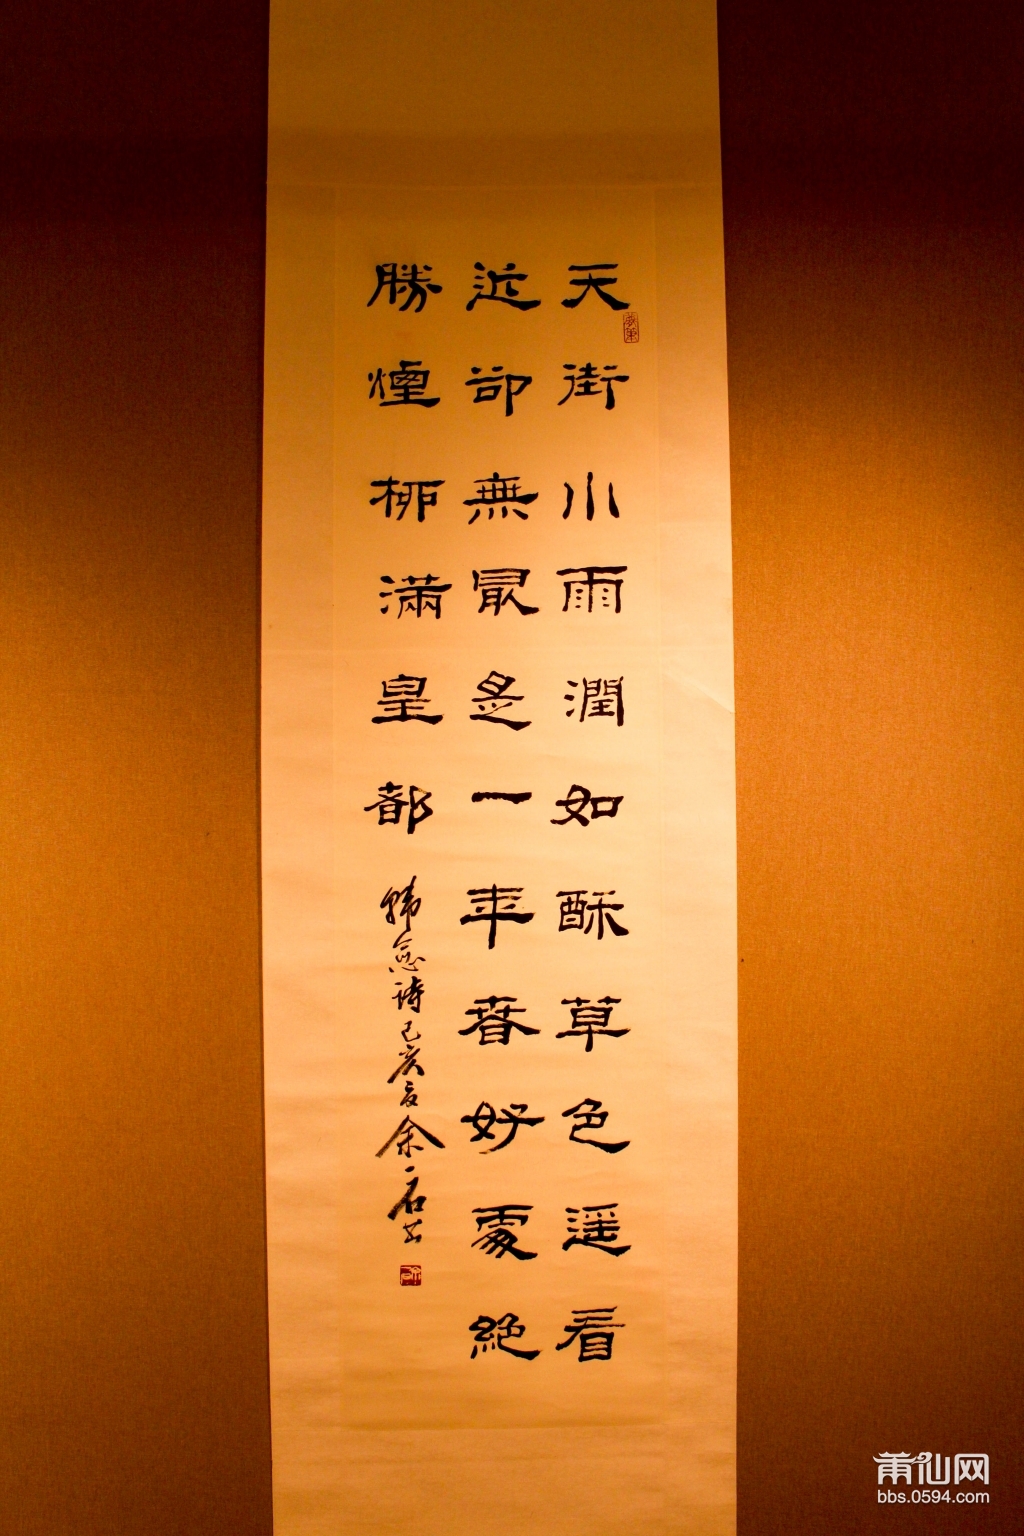 天街小雨潤如酥草色遥看
近卻無最是一年春好處絕
勝煙柳滿皇都
韩愈诗己亥夏余一石书
莆仙网
bbs.0594.com